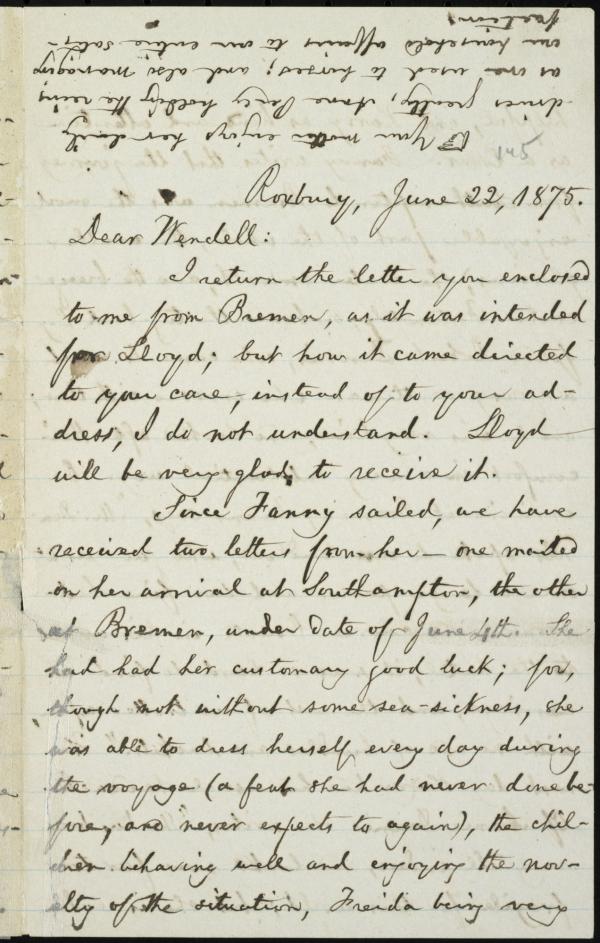 ☞ Your mother enjoys her daily
drives greatly, Anne Percy holding the reins
as one used to horses; and also managing
our household affairs to our entire satis-
faction.
145
Roxbury, June 22, 1875.
Dear Wendell:
I return the letter you enclosed
to me from Bremen, as it was intended
for Lloyd; but how it came directed
to your care, instead of to your ad-
dress, I do not understand. Lloyd
will be very glad to receive it.
Since Fanny sailed, we have
received two letters from her — one mailed
on her arrival at Southampton, the other
at Bremen, under date of June 4th. She
had had her customary good luck; for,
though not without some sea-sickness, she
was able to dress herself every day during
the voyage (a feat she had never done be-
fore, and never expects to again), the chil-
dren behaving well and enjoying the nov-
elty of the situation, Freida being very